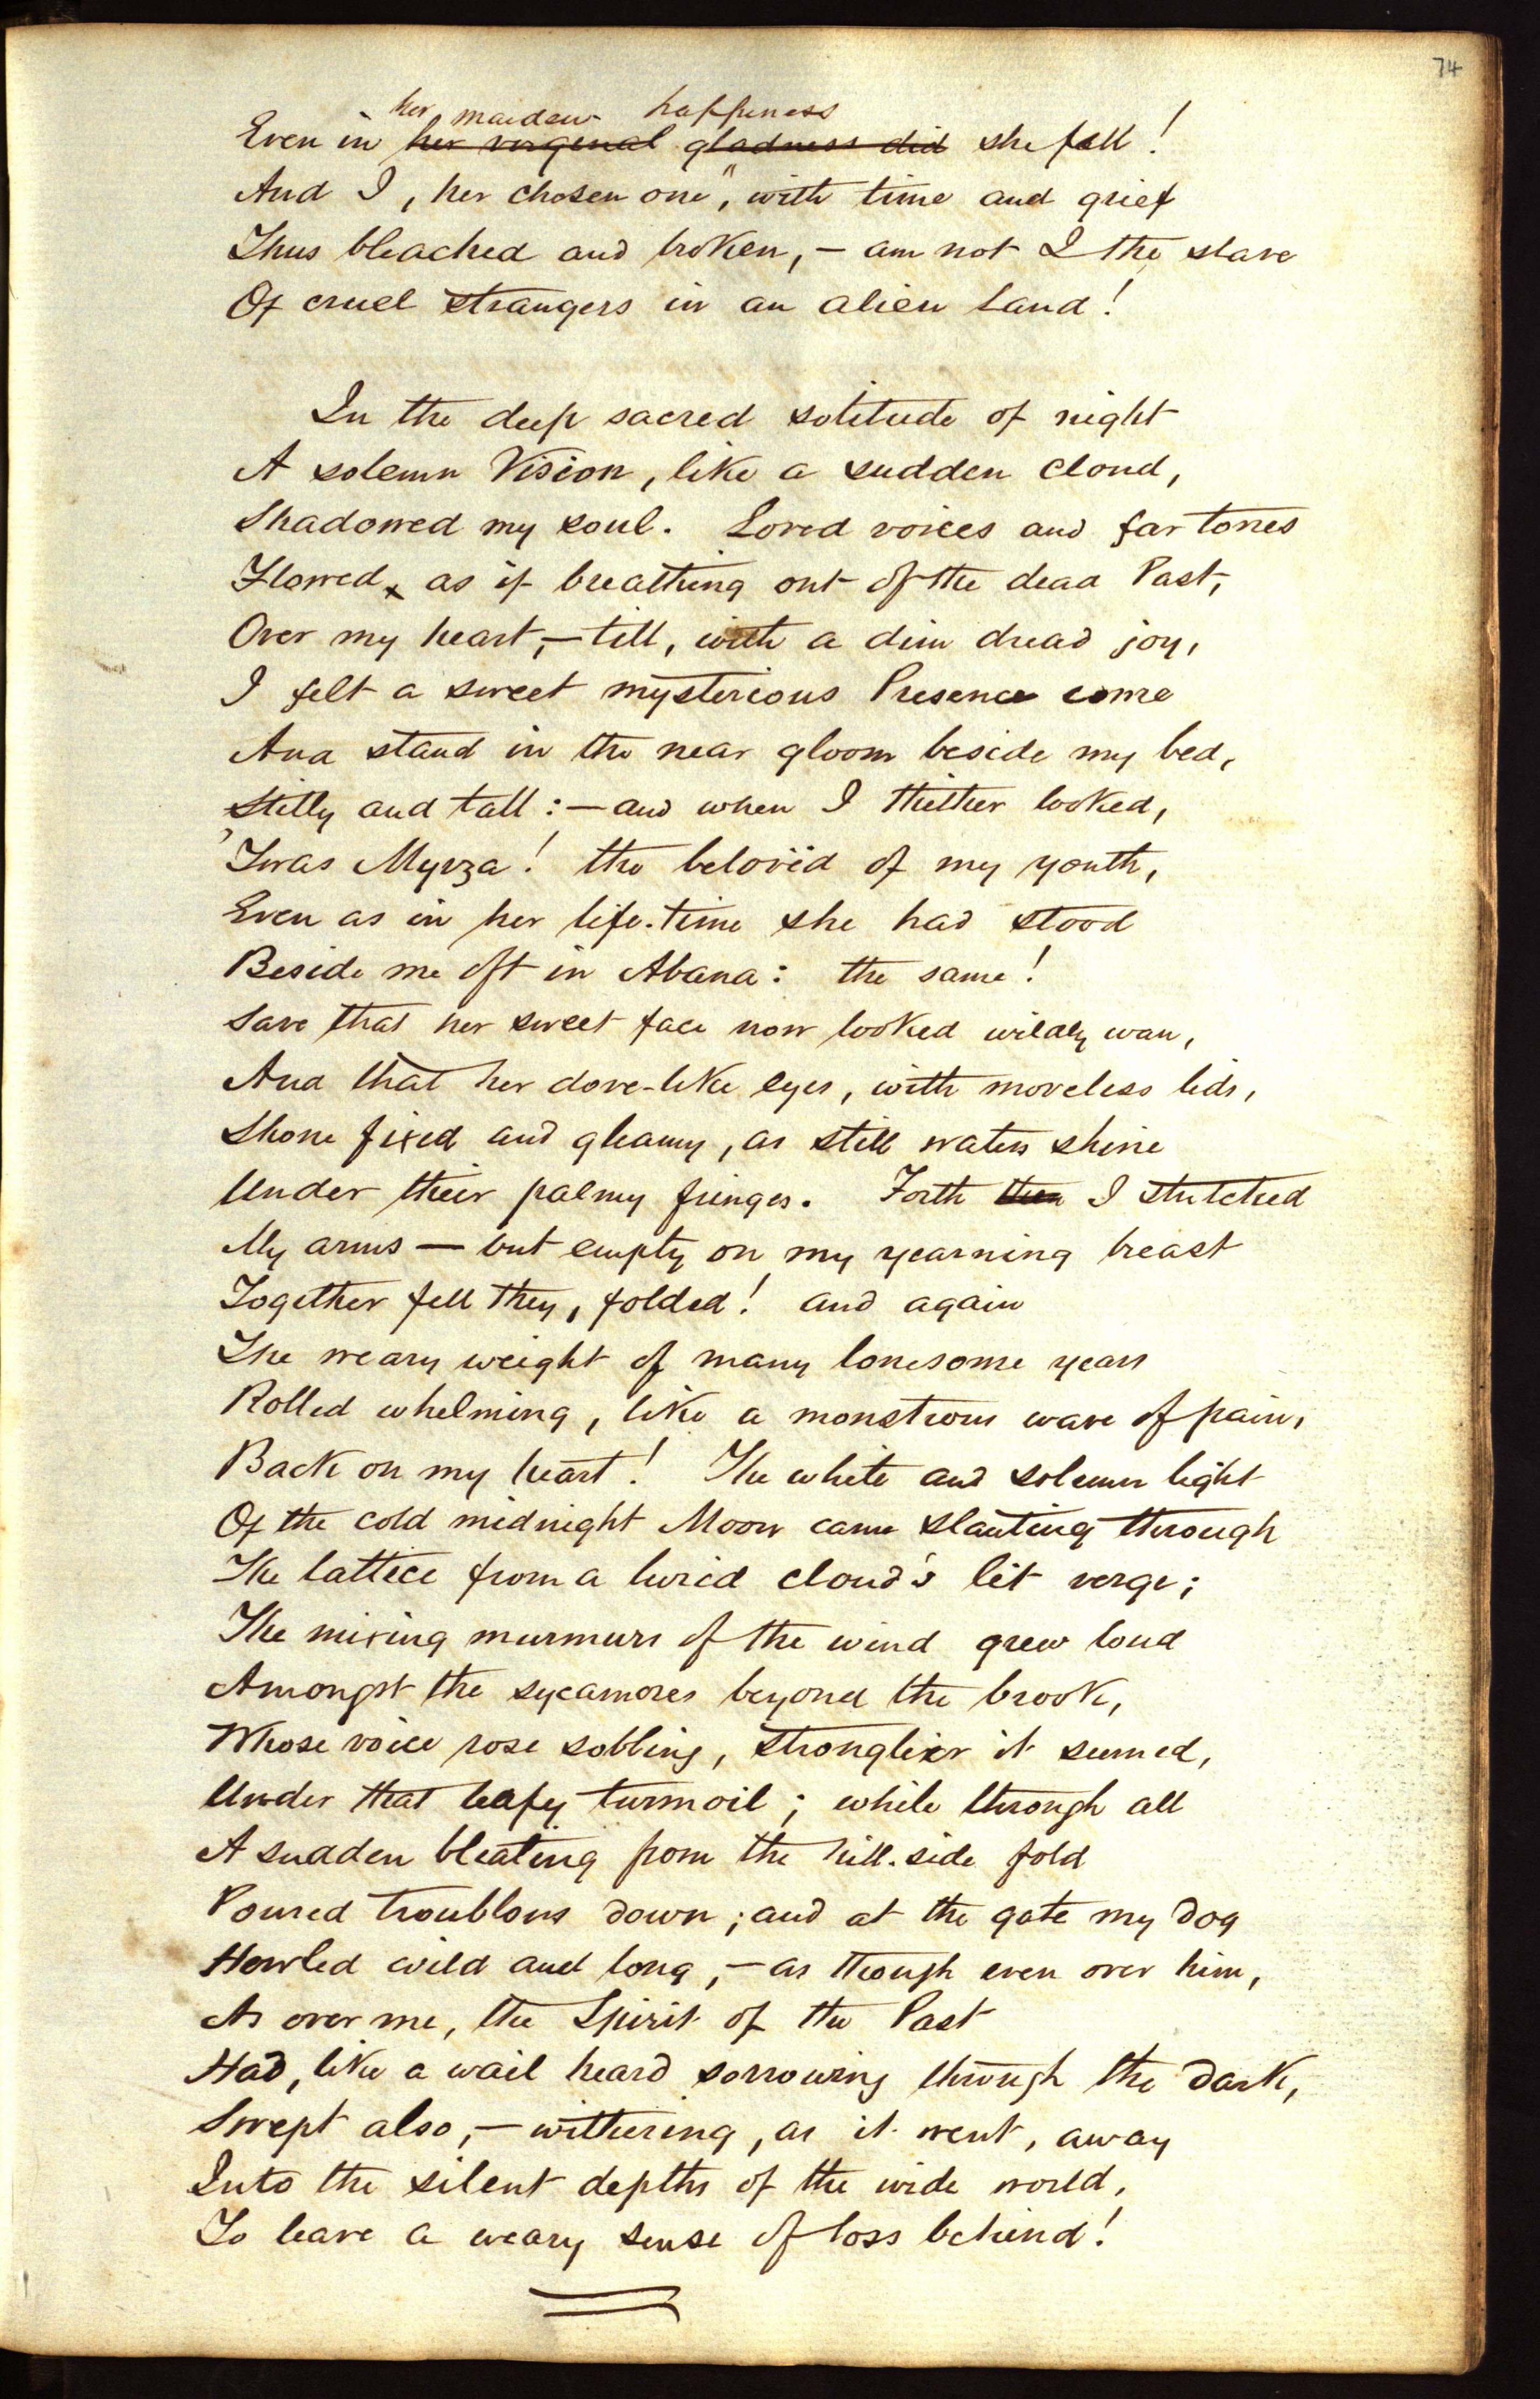 74
her maiden happiness
Even in her virginal gladness did she fall!
And I, her chosen one, with time and grief
Thus bleached and broken, – am not I the slave
Of cruel strangers in an alien land!
In the deep sacred solitude of night
A solemn Vision, like a sudden cloud,
Shadowed my soul. Loved voices and far tones
Flowed, as if breathing out of the dead Past,
Over my heart, – till, with a dim dread joy,
I felt a sweet mysterious Presence come
And stand in the near gloom beside my bed,
Stilly and tall: – and when I thither looked,
'Twas Myrza! the belovëd of my youth,
Even as in her life-time she had stood
Beside me oft in Abana: the same!
Save that her sweet face now looked wildly wan,
And that her dove-like eyes, with moveless lids,
Shone fixed and gleamy, as still waters shine
Under their palmy fringes. Forth then I stretched
My arms – but empty on my yearning breast
Together fell they, folded! and again
The weary weight of many lonesome years
Rolled whelming, like a monstrous wave of pain,
Back on my heart! The white and solemn light
Of the cold midnight Moon came slanting through
The lattice from a lurid cloud's lit verge;
The mixing murmurs of the wind grew loud
Amongst the sycamores beyond the brook,
Whose voice rose sobbing, stronglier it seemed,
Under that leafy turmoil; while through all
A sudden bleating from the hill-side fold
Poured troublous down; and at the gate my dog
Howled wild and long, – as though even over him,
As over me, the Spirit of the Past
Had, like a wail heard sorrowing through the dark,
Swept also, – withering, as it went, away
Into the silent depths of the wide world,
To leave a weary sense of loss behind!